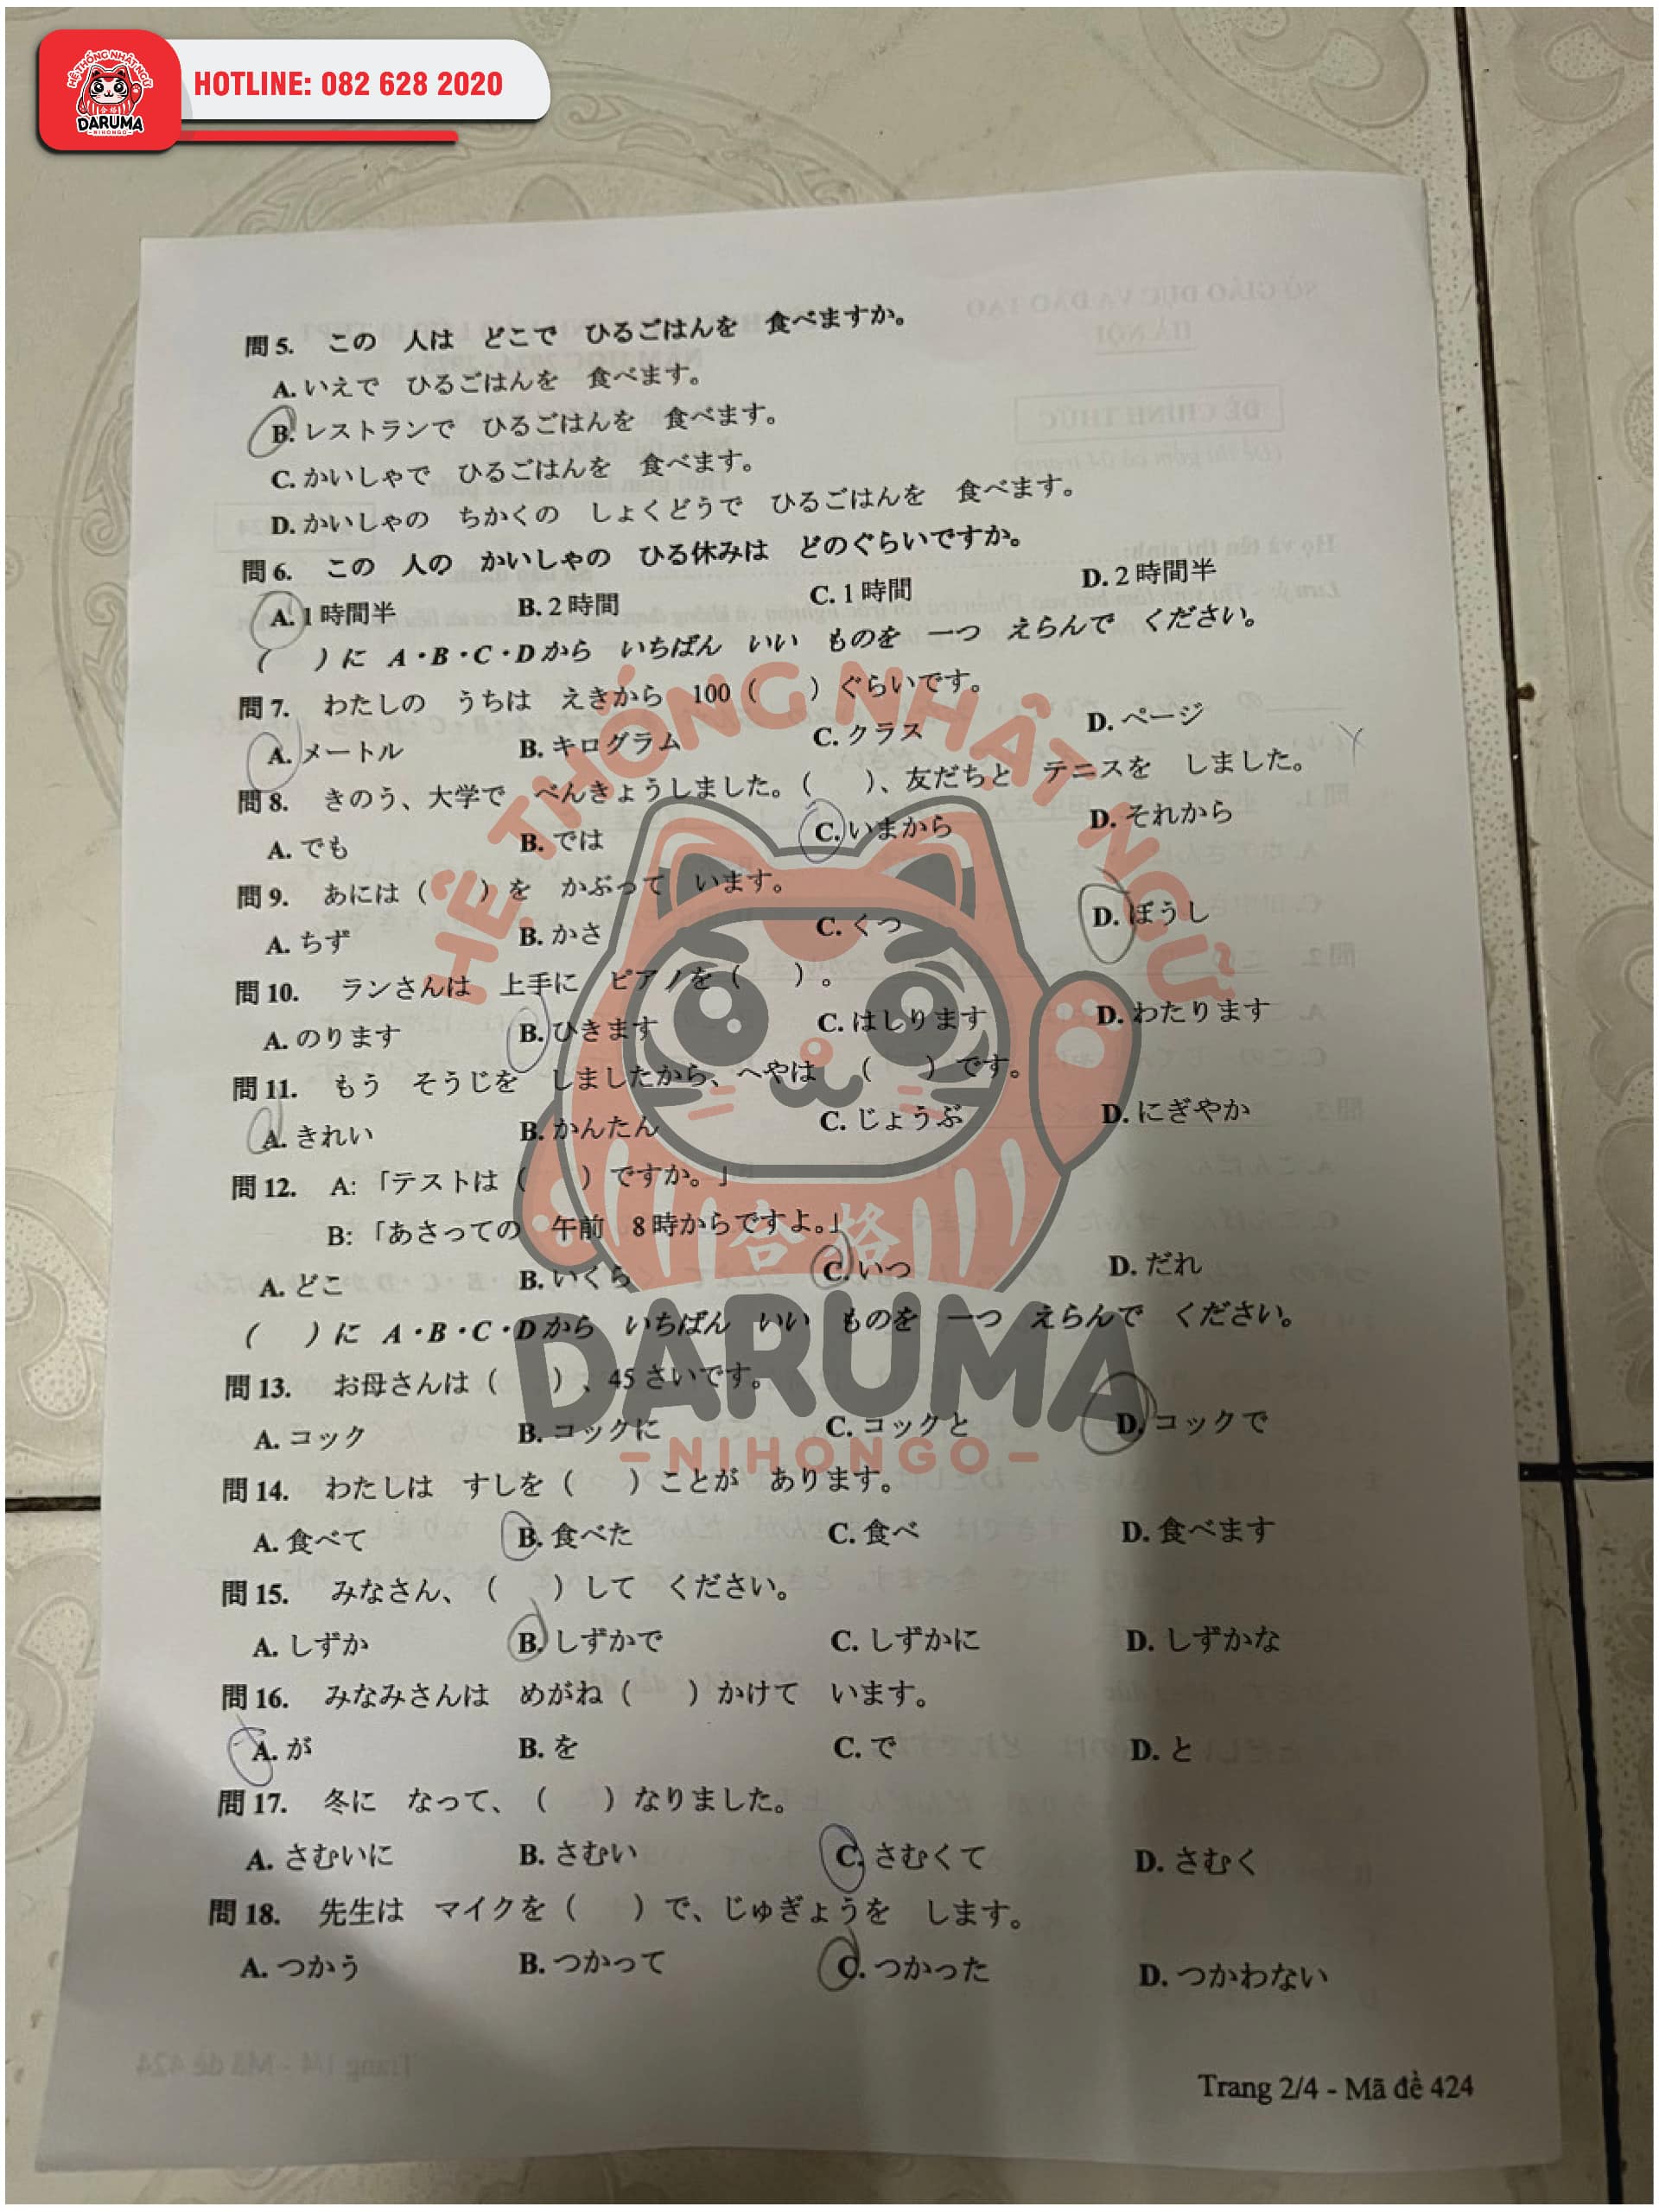 HỆ THỐNG NHẬT NGỮ
DARUMA
NIHONGO
HOTLINE: 082 628 2020
問 5. この 人は どこで ひるごはんを 食べますか。
A. いえで ひるごはんを 食べます。
B. レストランで ひるごはんを 食べます。
C. かいしゃで ひるごはんを 食べます。
D. かいしゃの ちかくの しょくどうで ひるごはんを 食べます。
問 6. この 人の かいしゃの ひる休みは どのぐらいですか。
A. 1 時間半 B. 2 時間 C. 1 時間 D. 2 時間半
( )に A・B・C・Dから いちばん いい ものを 一つ えらんで ください。
問 7. わたしの うちは えきから 100( )ぐらいです。
A. メートル B. キログラム C. クラス D. ページ
問 8. きのう、大学で べんきょうしました。( )、友だちと テニスを しました。
A. でも B. では C. いまから D. それから
問 9. あには( )を かぶって います。
A. ちず B. かさ C. くつ D. ぼうし
問 10. ランさんは 上手に ピアノを( )。
A. のります B. ひきます C. はしります D. わたります
問 11. もう そうじを しましたから、へやは ( )です。
A. きれい B. かんたん C. じょうぶ D. にぎやか
問 12. A: 「テストは( )ですか。」
B: 「あさっての 午前 8 時からですよ。」
A. どこ B. いくら C. いつ D. だれ
( )に A・B・C・Dから いちばん いい ものを 一つ えらんで ください。
問 13. お母さんは( )、45 さいです。
A. コック B. コックに C. コックと D. コックで
問 14. わたしは すしを( )ことが あります。
A. 食べて B. 食べた C. 食べ D. 食べます
問 15. みなさん、( )して ください。
A. しずか B. しずかで C. しずかに D. しずかな
問 16. みなみさんは めがね( )かけて います。
A. が B. を C. で D. と
問 17. 冬に なって、( )なりました。
A. さむいに B. さむい C. さむくて D. さむく
問 18. 先生は マイクを( )で、じゅぎょうを します。
A. つかう B. つかって C. つかった D. つかわない
Trang 2/4 - Mã đề 424
HỆ THỐNG NHẬT NGỮ
合格
DARUMA
- NIHONGO -